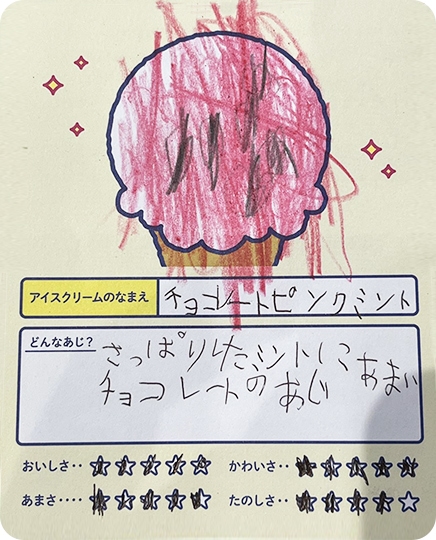 アイスクリームのなまえ チョコレートピンクミント
どんなあじ? さっぱりしたミントに あまい
チョコレートの あじ
おいしさ‥ ★★★★★ かわいさ‥ ★★★★★
あまさ‥‥ ★★★★★ たのしさ‥ ★★★★☆